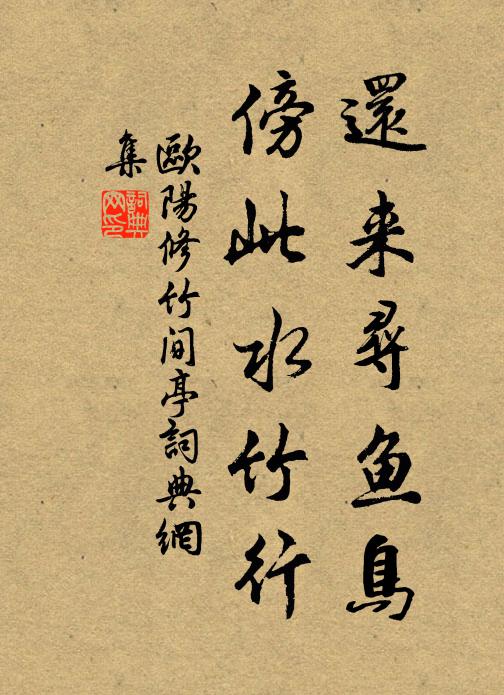 還来尋鱼鳥
傍此水竹行
歐陽修竹间亭詞典網
集
詞典
网印